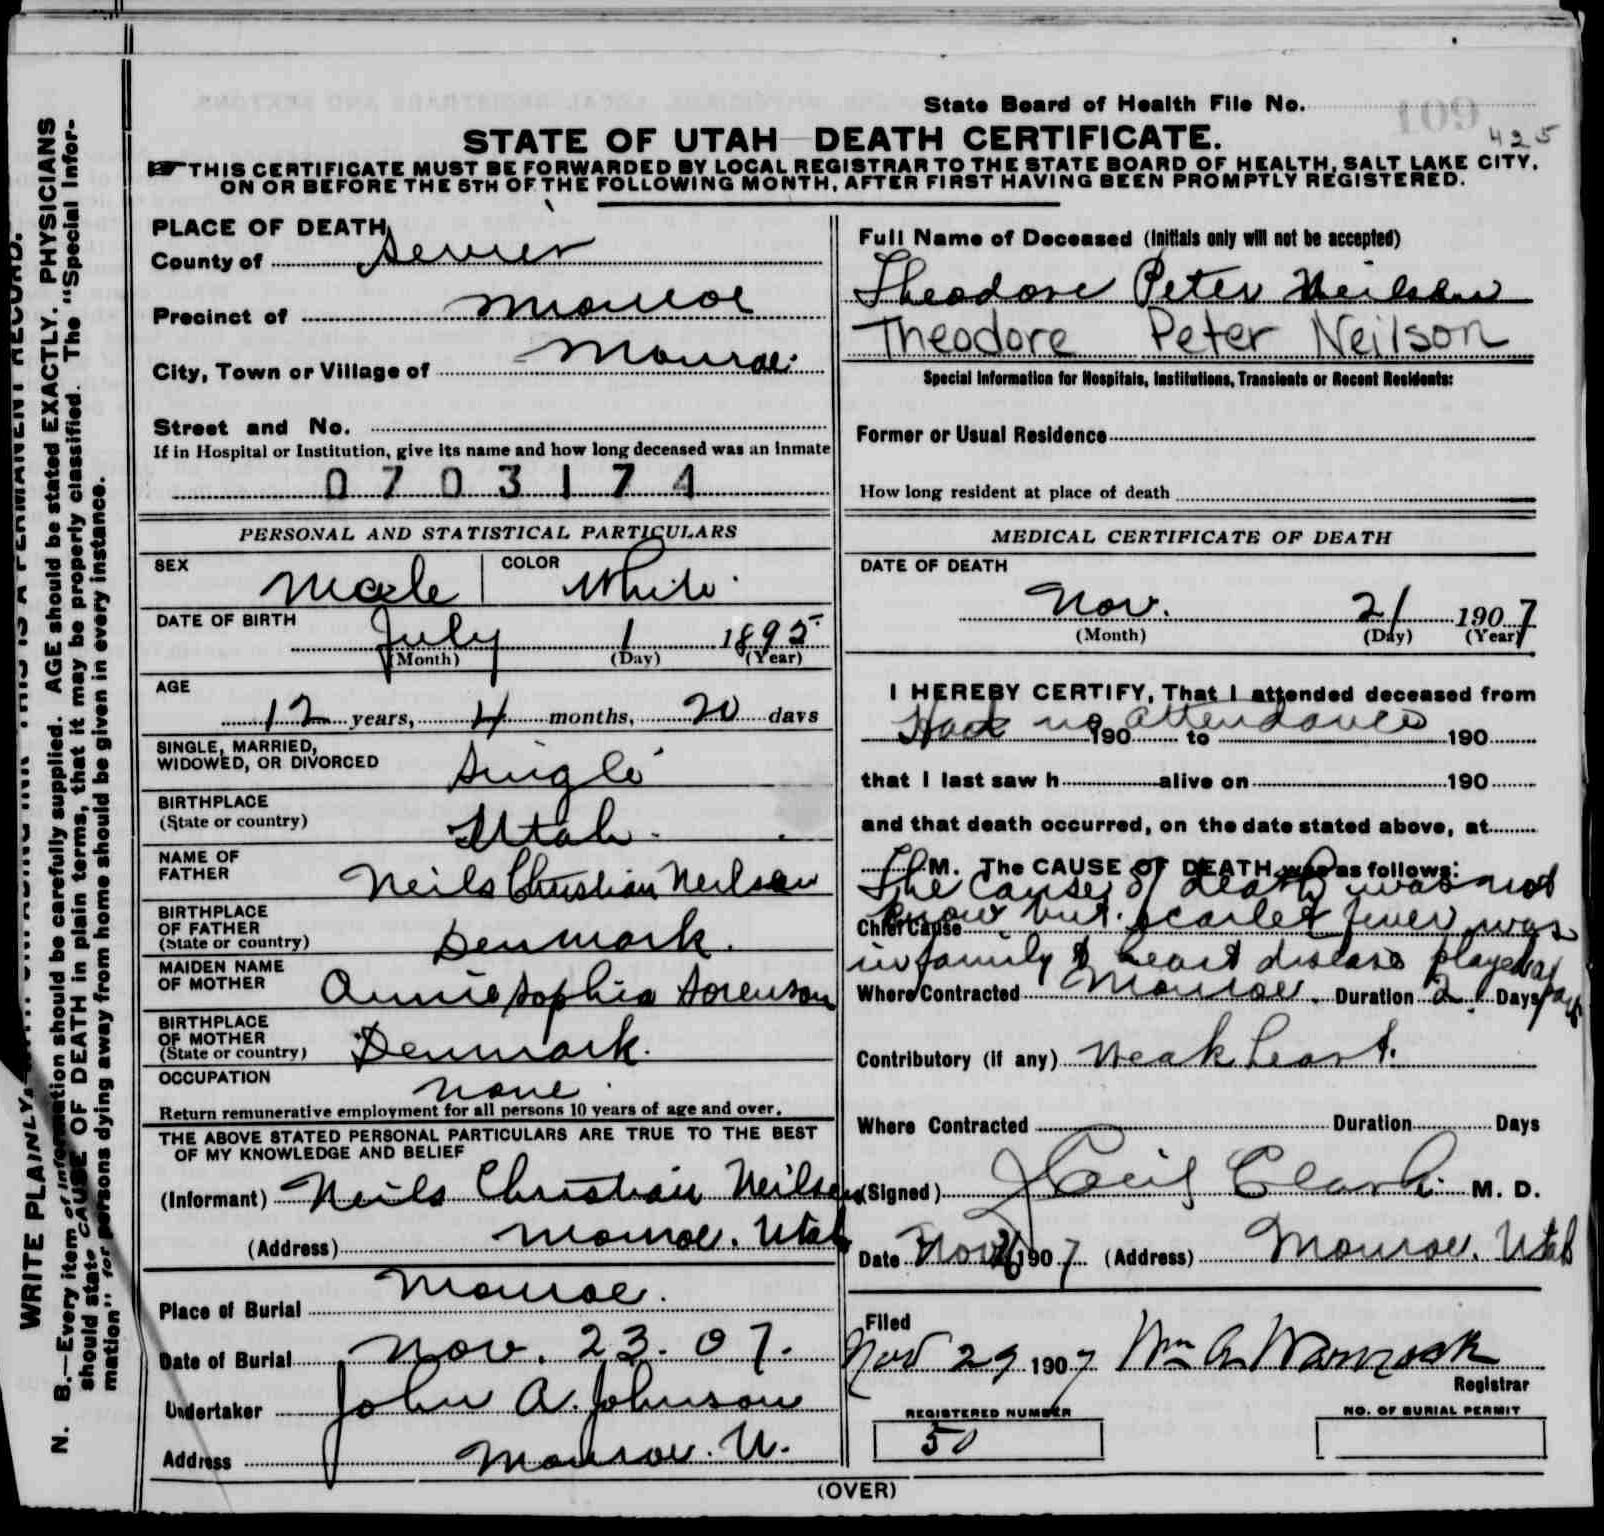 State Board of Health File No.
109
425
STATE OF UTAH—DEATH CERTIFICATE.
THIS CERTIFICATE MUST BE FORWARDED BY LOCAL REGISTRAR TO THE STATE BOARD OF HEALTH, SALT LAKE CITY,
ON OR BEFORE THE 5TH OF THE FOLLOWING MONTH, AFTER FIRST HAVING BEEN PROMPTLY REGISTERED.
PLACE OF DEATH
County of Sevier
Precinct of Monroe
City, Town or Village of Monroe
Street and No.
If in Hospital or Institution, give its name and how long deceased was an inmate
0703174
PERSONAL AND STATISTICAL PARTICULARS
SEX Male COLOR White
DATE OF BIRTH
July 1 1895
(Month) (Day) (Year)
AGE
12 years, 4 months, 20 days
SINGLE, MARRIED,
WIDOWED, OR DIVORCED Single
BIRTHPLACE
(State or country) Utah
NAME OF
FATHER Neils Christian Neilsen
BIRTHPLACE
OF FATHER
(State or country) Denmark.
MAIDEN NAME
OF MOTHER Annie Sophia Sorenson
BIRTHPLACE
OF MOTHER
(State or country) Denmark.
OCCUPATION none.
Return remunerative employment for all persons 10 years of age and over.
THE ABOVE STATED PERSONAL PARTICULARS ARE TRUE TO THE BEST
OF MY KNOWLEDGE AND BELIEF
(Informant) Neils Christian Neilsen
(Address) Monroe. Utah
Place of Burial Monroe.
Date of Burial Nov. 23. 07.
Undertaker John A. Johnson
Address Monroe. U.
Full Name of Deceased (Initials only will not be accepted)
Theodore Peter Neilson
Theodore Peter Neilson
Special Information for Hospitals, Institutions, Transients or Recent Residents:
Former or Usual Residence
How long resident at place of death
MEDICAL CERTIFICATE OF DEATH
DATE OF DEATH
Nov. 21 1907
(Month) (Day) (Year)
I HEREBY CERTIFY, That I attended deceased from
Had no attendance
190 to 190
that I last saw h alive on 190
and that death occurred, on the date stated above, at
M. The CAUSE OF DEATH was as follows:
The cause of death was not
Chief Cause know but scarlet fever was
in family & heart disease played a part
Where Contracted Monroe. Duration 2 Days
Contributory (if any) Weak heart.
Where Contracted Duration Days
(Signed) J Cecil Clark. M. D.
Date Nov 1907 (Address) Monroe. Utah
Filed
Nov 29 1907 Wm A Warnock
Registrar
REGISTERED NUMBER
50
NO. OF BURIAL PERMIT
(OVER)
WRITE PLAINLY, WITH UNFADING INK—THIS IS A PERMANENT RECORD.
N. B.—Every item of information should be carefully supplied. AGE should be stated EXACTLY. PHYSICIANS
should state CAUSE OF DEATH in plain terms, that it may be properly classified. The "Special Infor-
mation" for persons dying away from home should be given in every instance.